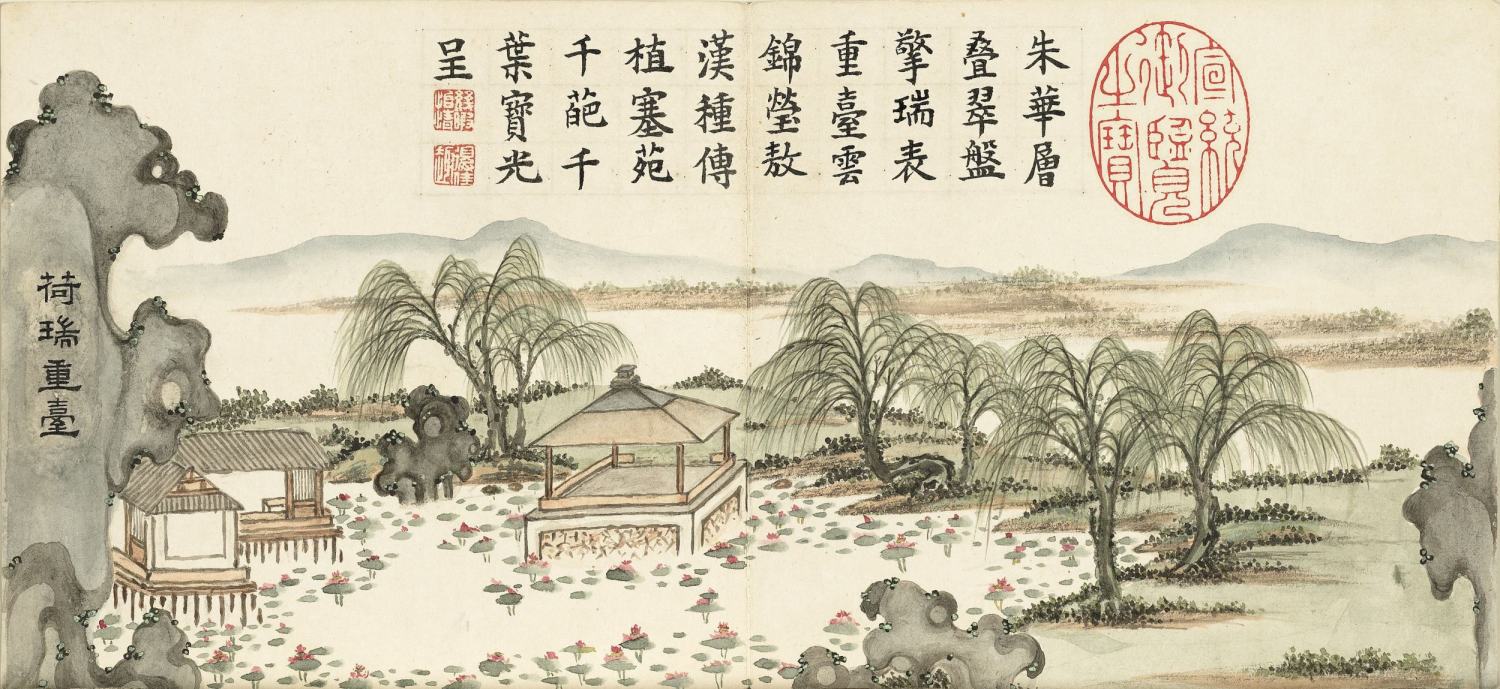 宣統
御覽
之寶
朱華層
叠翠盤
擎瑞表
重臺雲
錦瑩敖
漢種傳
植塞苑
千葩千
葉寶光
呈
荷瑞重臺